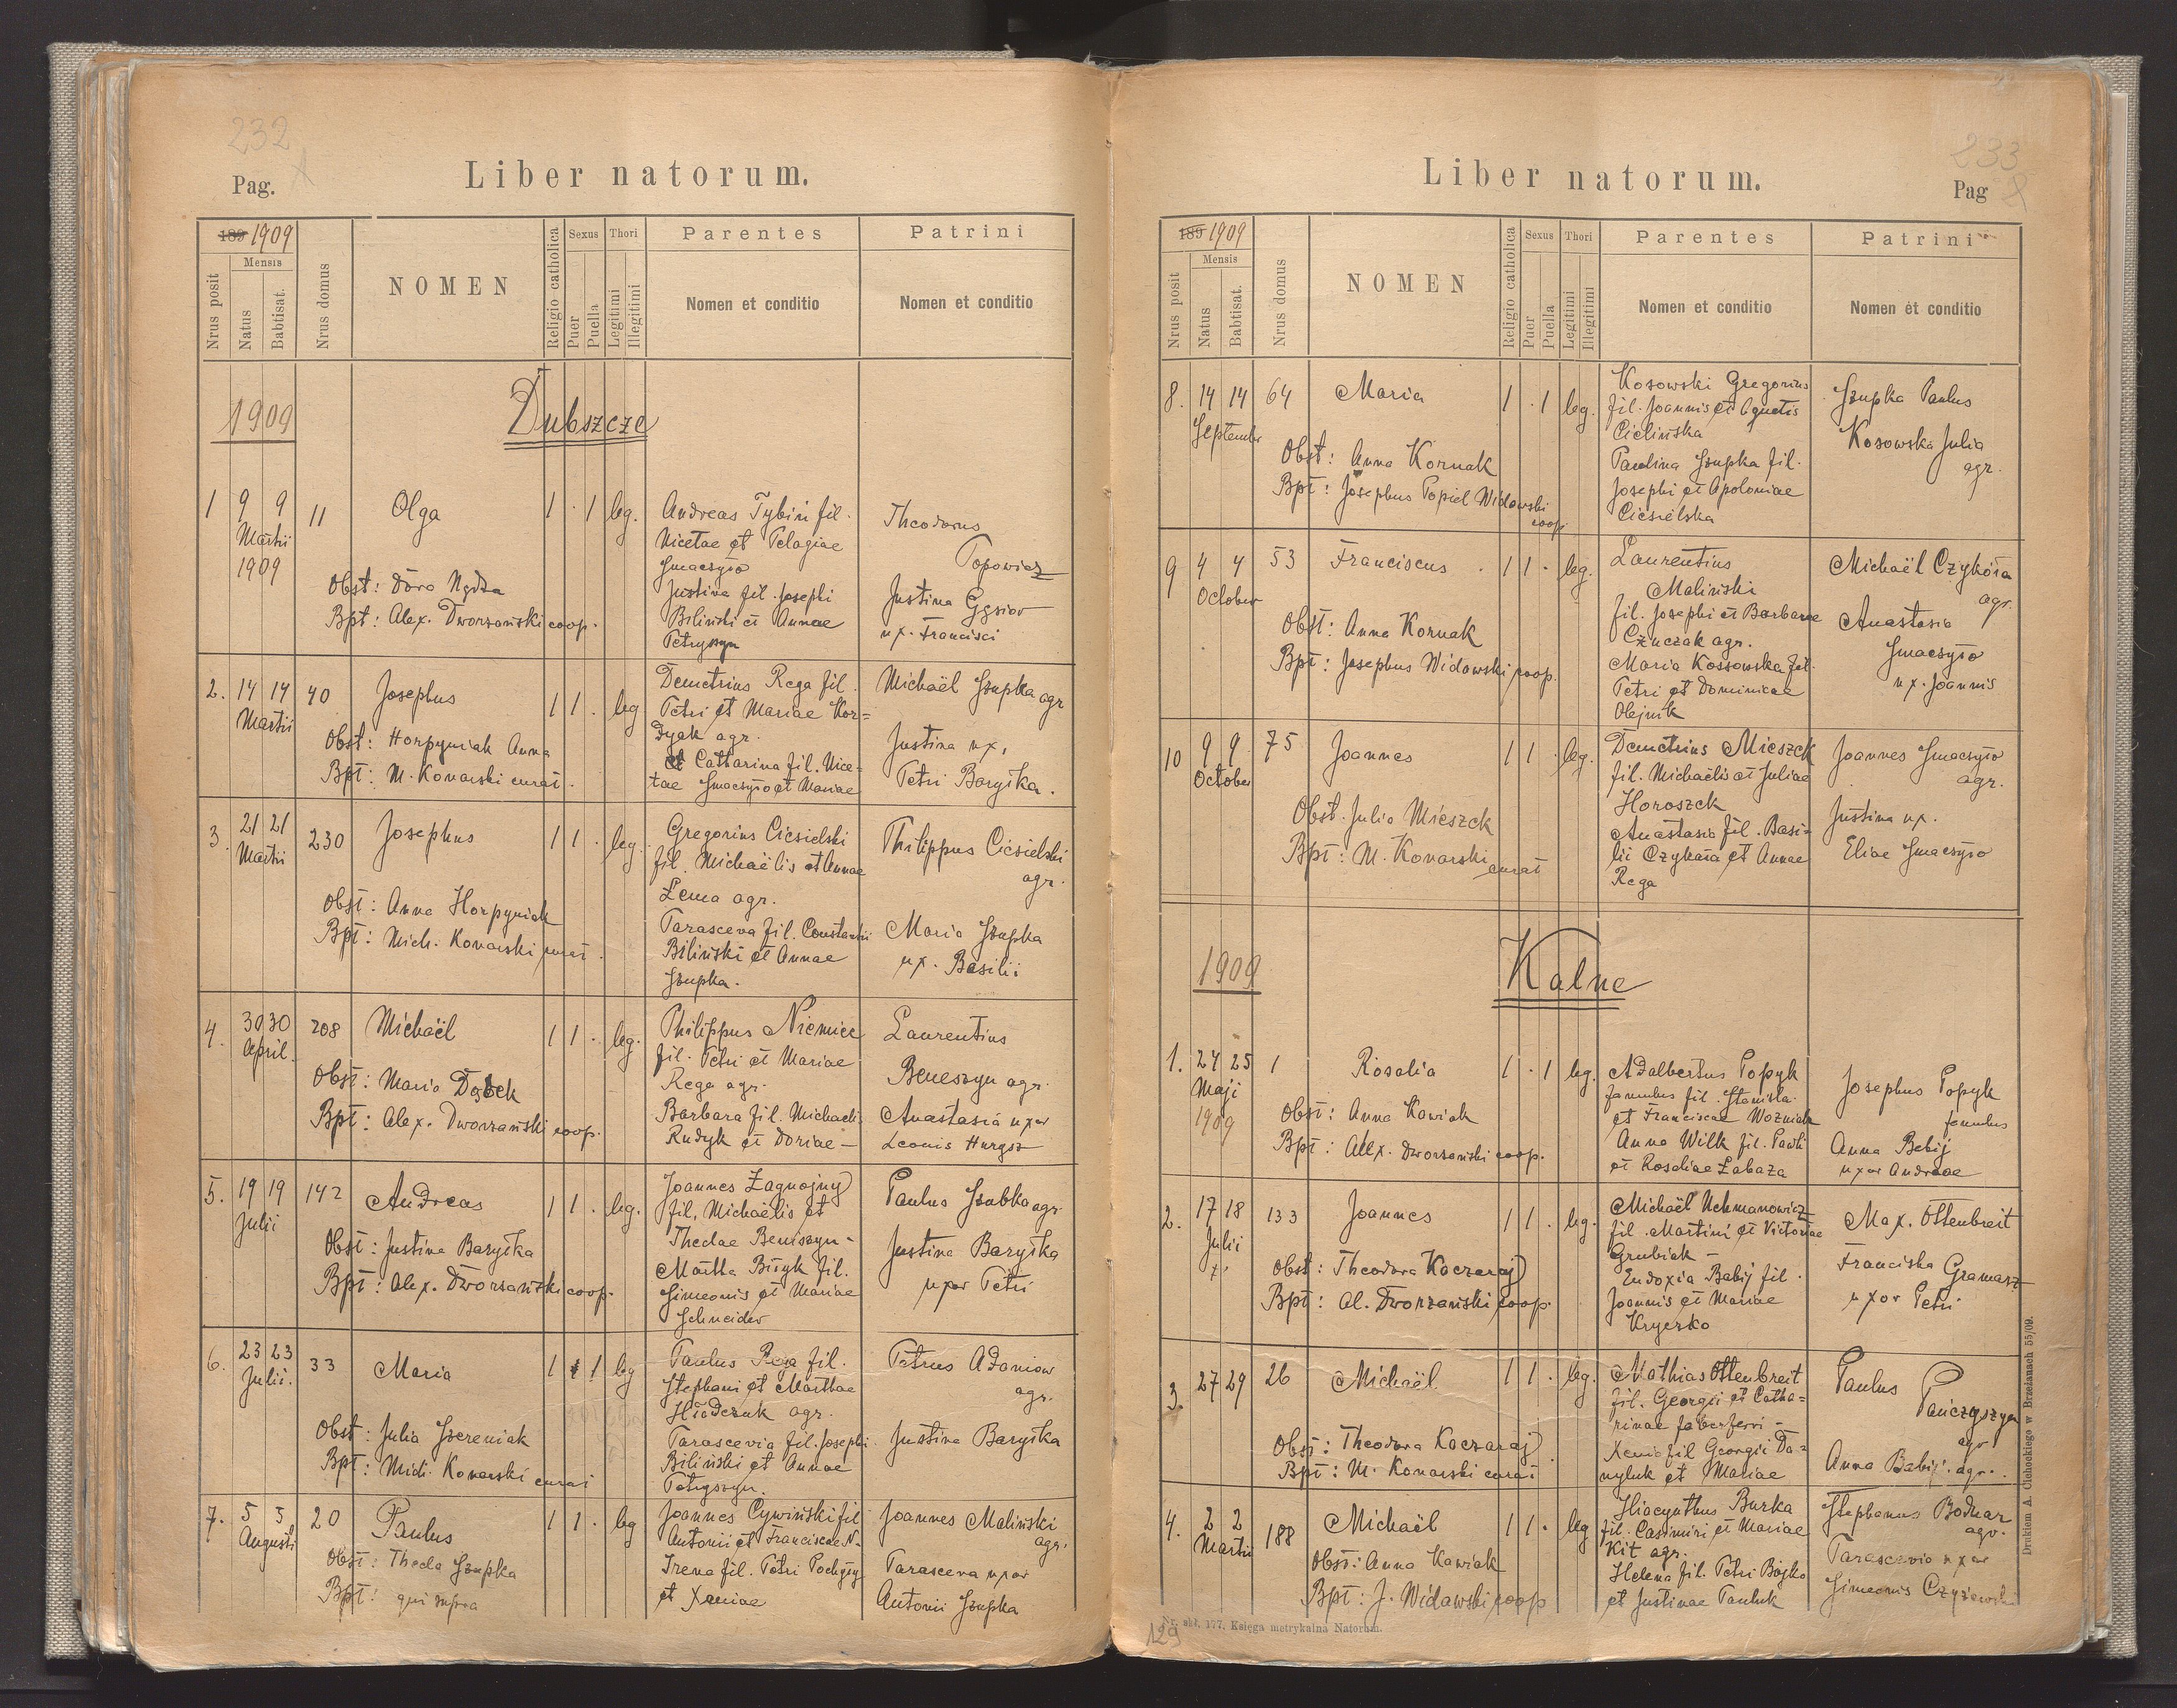 232
Pag.
Liber natorum.
189 1909
Nrus posit
Mensis
Natus
Babtisat.
Nrus domus
NOMEN
Religio catholica
Sexus
Puer
Puella
Thori
Legitimi
Illegitimi
Parentes
Nomen et conditio
Patrini
Nomen et conditio
1909
Dubszcze
1 9 9 11 Olga 1 · 1 leg.
Martii
1909
Obst: Dora
Bpt: Alex. Dworzański coop.
Andreas Tybin fil.
Nicetae et Pelagiae
Smaczyło
Justina fil. Josephi
Biliński et Annae
Petryszyn
Theodorus
Popowicz
Justina Gąsior
ux. Francisci
2. 14 14 40 Josephus 1 1 · leg
Martii
Obst: Horpyniak Anna
Bpt: M. Konarski curat.
Demetrius Rega fil.
Petri et Mariae Kor=
dyak agr.
et Catharina fil. Nice=
tae Smaczyło et Mariae
Michaël Szupka agr
Justina ux.
Petri Baryłka.
3. 21 21 230 Josephus 1 1 · leg.
Martii
Obst: Anna Horpyniak
Bpt: Mich. Konarski curat.
Gregorius Ciesielski
fil. Michaëlis et Annae
Łema agr.
Parasceva fil. Constantii
Biliński et Annae
Szupka.
Philippus Ciesielski
agr.
Maria Szupka
ux. Basilii
4. 30 30 208 Michaël 1 1 · leg.
April.
Obst: Maria Dąbek
Bpt: Alex. Dworzański coop.
Philippus Niemiec
fil. Petri et Mariae
Rega agr.
Barbara fil. Michaelis
Rudyk et Doriae —
Laurentius
Beneszyn agr.
Anastasia uxor
Leonis
5. 19 19 142 Andreas 1 1 · leg.
Julii
Obst: Justina Baryłka
Bpt: Alex. Dworzański coop.
Joannes Zagnojny
fil. Michaëlis et
Theclae Beneszyn -
Martha Biłyk fil.
Simeonis et Mariae
Schneider
Paulus Szubka agr.
Justina Baryłka
uxor Petri
6. 23 23 33 Maria 1 1 leg
Julii.
Obst: Julia Szereniak
Bpt: Mich. Konarski curat
Paulus Rega fil.
Stephani et Marthae
Hładczuk agr.
Parascevia fil. Josephi
Biliński et Annae
Petryszyn.
Petrus Adamow
agr.
Justina Baryłka
7. 5 5 20 Paulus 1 1 · leg
Augusti
Obst: Thecla Szupka
Bpt: qui supra
Joannes Cywiński fil
Antonii et Franciscae N-
Irena fil. Petri
et Xeniae
Joannes Maliński
agr.
Parasceva uxor
Antonii Szupka
233
Pag
Liber natorum.
189 1909
Nrus posit
Mensis
Natus
Babtisat.
Nrus domus
NOMEN
Religio catholica
Sexus
Puer
Puella
Thori
Legitimi
Illegitimi
Parentes
Nomen et conditio
Patrini
Nomen et conditio
8. 14 14 64 Maria 1 · 1 leg.
Septembr
Obst: Anna Kornak
Bpt: Josephus Popiel Widawski
coop
Kosowski Gregorius
fil. Joannis et Agnetis
Cielińska
Paulina Szupka fil.
Josephi et Apoloniae
Ciesielska
Szupka Paulus
Kosowska Julia
agr.
9 4 4 53 Franciscus 1 1 · leg.
October
Obst: Anna Kornak
Bpt: Josephus Widawski coop.
Laurentius
Maliński
fil. Josephi et Barbarae
Czuczak agr.
Maria Kossowska fil.
Petri et Dominicae
Olejnik
Michaël Czykoła
agr.
Anastasia
Smaczyło
ux. Joannis
10 9 9 75 Joannes 1 1 leg.
October
Obst. Julia Mieszek
Bpt: M. Konarski
curat
Demetrius Mieszek
fil. Michaëlis et Juliae
Horoszek
Anastasia fil. Basi=
lii Czykoła et Annae
Rega
Joannes Smaczyło
agr.
Justina ux.
Eliae Smaczyło
1909
Kalne
1. 24 25 1 Rosalia 1 · 1 leg.
Maji
1909
Obst: Anna Kawiak
Bpt: Alex. Dworzański coop.
Adalbertus Popyk
famulus fil. Stanisla.
et Franciscae Woźniak
Anna Wilk fil. Pawli
et Rosaliae Łabaza
Josephus Popyk
famulus
Anna Bebij
uxor Andreae
2. 17 18 133 Joannes 1 1 · leg.
Julii
Obst: Theodora Koczaraj
Bpt: Al. Dworzański coop.
Michaël Uchmanowicz
fil. Martini et Victoriae
Grubiak -
Eudoxia Babij fil.
Joannis et Mariae
Kryczko
Max. Ottenbreit
Franciska Gramarz
uxor Petri
3. 27 29 26 Michaël 1 1 · leg.
Obst: Theodora Koczaraj
Bpt: M. Konarski curat
Mathias Ottenbreit
fil. Georgii et Catha=
rinae faberferri -
Xenia fil Georgii Da=
nyluk et Mariae
Paulus
Pańczyszyn
agr
Anna Babij agr.
4. 2 2 188 Michaël 1 1 · leg
Martii
Obst: Anna Kawiak
Bpt: J. Widawski coop
Hiacynthus Burka
fil. Casimiri et Mariae
Kit agr.
Helena fil. Petri Bojko
et Justinae Pauluk
Stephanus Bodnar
agr.
Parascevia uxor
Simeonis Czyżewski
Drukiem A. Cichockiego w Brzeżanach 55/09.
Nr. skł. 177. Księga metrykalna Natorum.
129